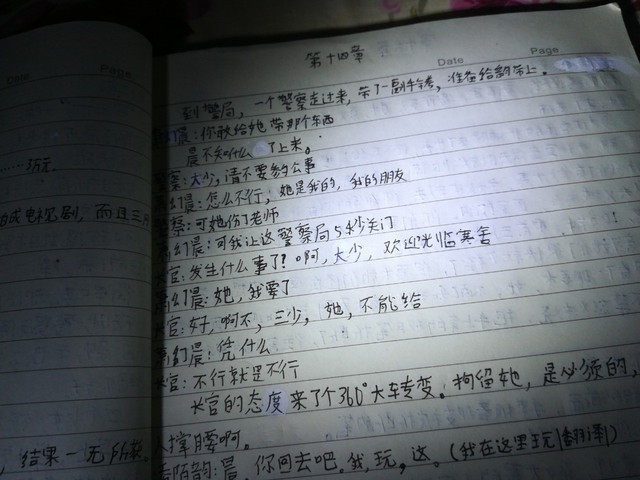 Date Page
第十四章
Date Page
到警局，一个警察走过来，带了一副手铐，准备给韵带上。
晨：你敢给她带那个东西
晨不知什么 了上来。
察：大少，请不要参公事
幻晨：怎么不行，她是我的，我的朋友
警察：可她伤了老师
幻晨：可我让这警察局5秒关门
官：发生什么事了？啊，大少，欢迎光临寒舍
幻晨：她，我要了
官：好，啊不，三少，她，不能给
幻晨：凭什么
长官：不行就是不行
长官的态度来了个360°大转变。拘留她，是必须的，
人撑腰啊。
陌韵：晨，你回去吧。我，玩，这。（我在这里玩|翻译|）
……3万元
拍成电视剧，而且三
，结果一无所获